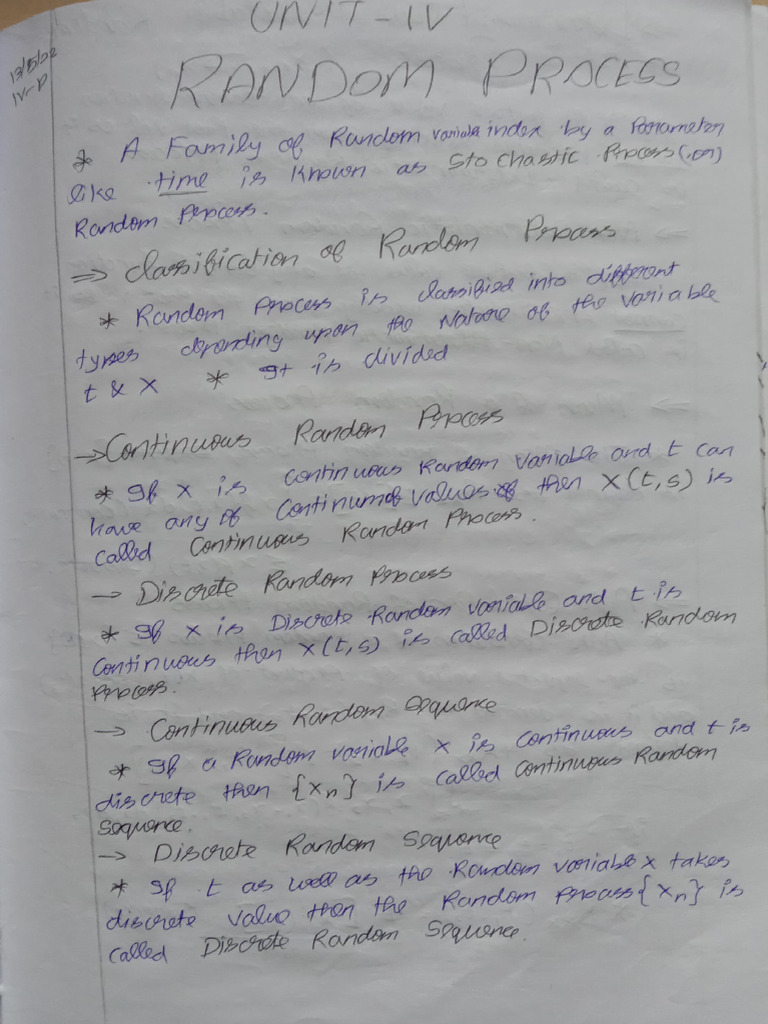 UNIT-IV
13/5/22
IV-P
RANDOM PROCESS
* A Family of Random variable index by a Parameter
like time is known as Stochastic Process (or)
Random Process.
⇒ Classification of Random Process
* Random Process is classified into different
types depending upon the Nature of the variable
t & X * It is divided
→ Continuous Random Process
* If X is continuous Random variable and t can
have any of Continum of values then X(t,s) is
called Continuous Random Process.
→ Discrete Random Process
* If X is Discrete Random variable and t is
Continuous then X(t,s) is called Discrete Random
Process.
→ Continuous Random Sequence
* If a Random variable X is continuous and t is
discrete then {Xn} is called Continuous Random
Sequence.
→ Discrete Random Sequence
* If t as well as the Random variable X takes
discrete value then the Random Process {Xn} is
called Discrete Random Sequence.